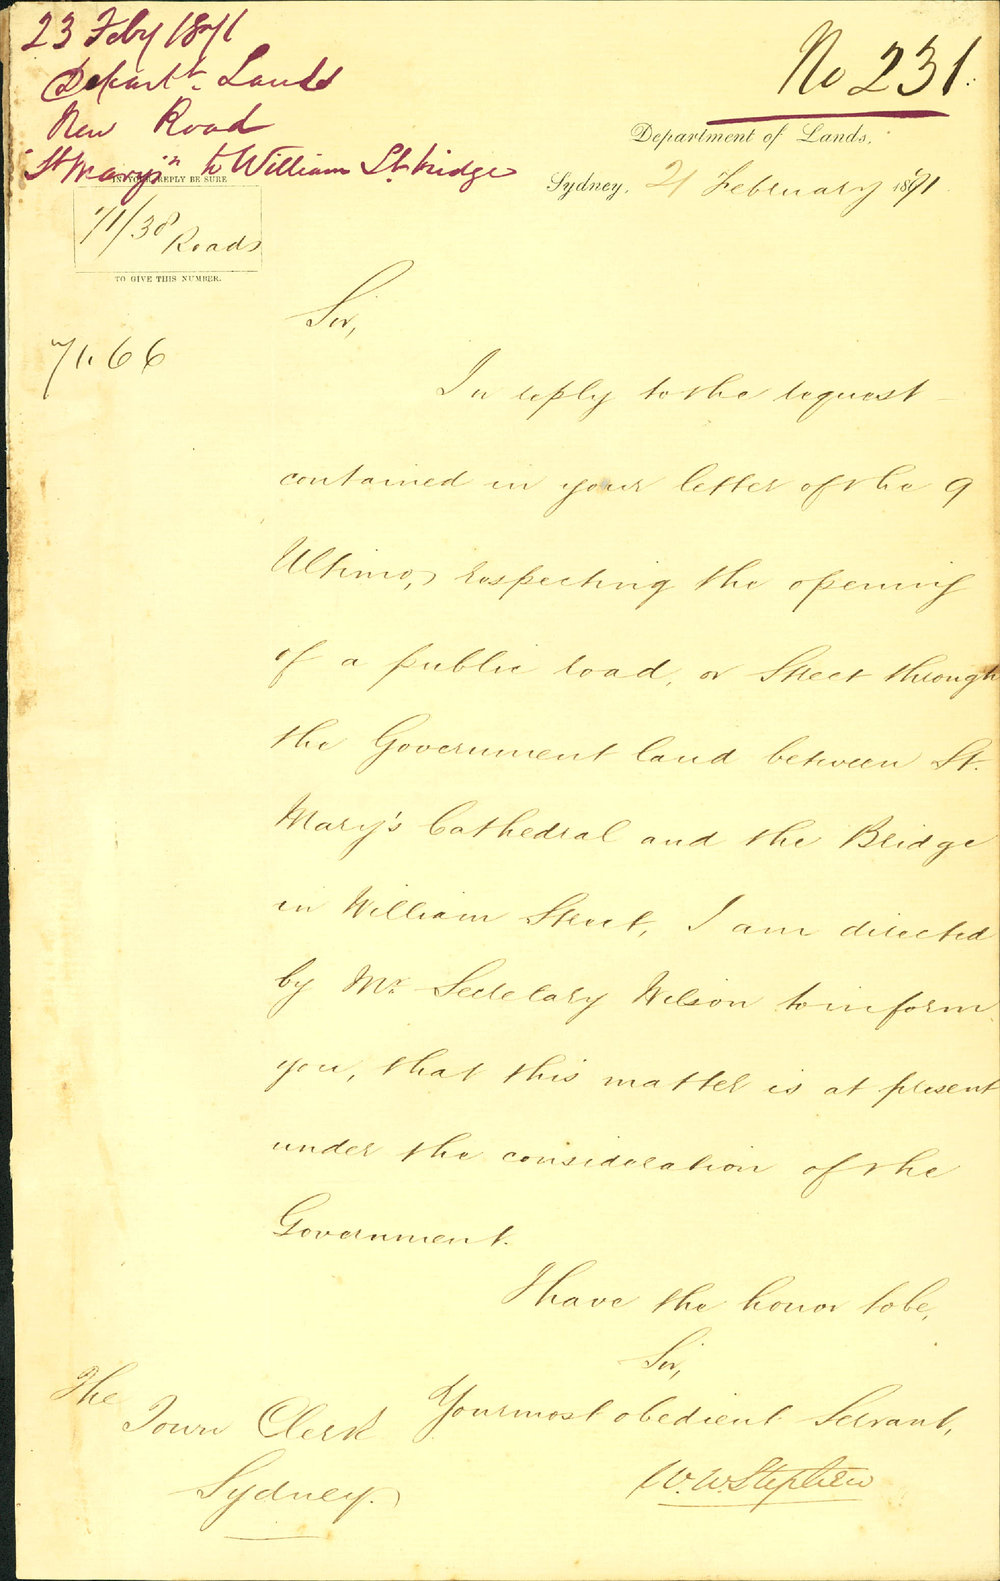 23 Feby 1871
Departt. Lands
New Road
"St Mary's" to William St. bridge
No 231.
Department of Lands,
Sydney, 21 February 1871.
IN YOUR REPLY BE SURE
71/38 Roads
TO GIVE THIS NUMBER.
71.66
Sir,
In reply to the request
contained in your letter of the 9
Ultimo, respecting the opening
of a public road, or Street through
the Government land between St.
Mary's Cathedral and the Bridge
in William Street, I am directed
by Mr. Secretary Wilson to inform
you, that this matter is at present
under the consideration of the
Government.
I have the honor to be,
Sir,
Your most obedient Servant,
W. W. Stephen
The
Town Clerk
Sydney.